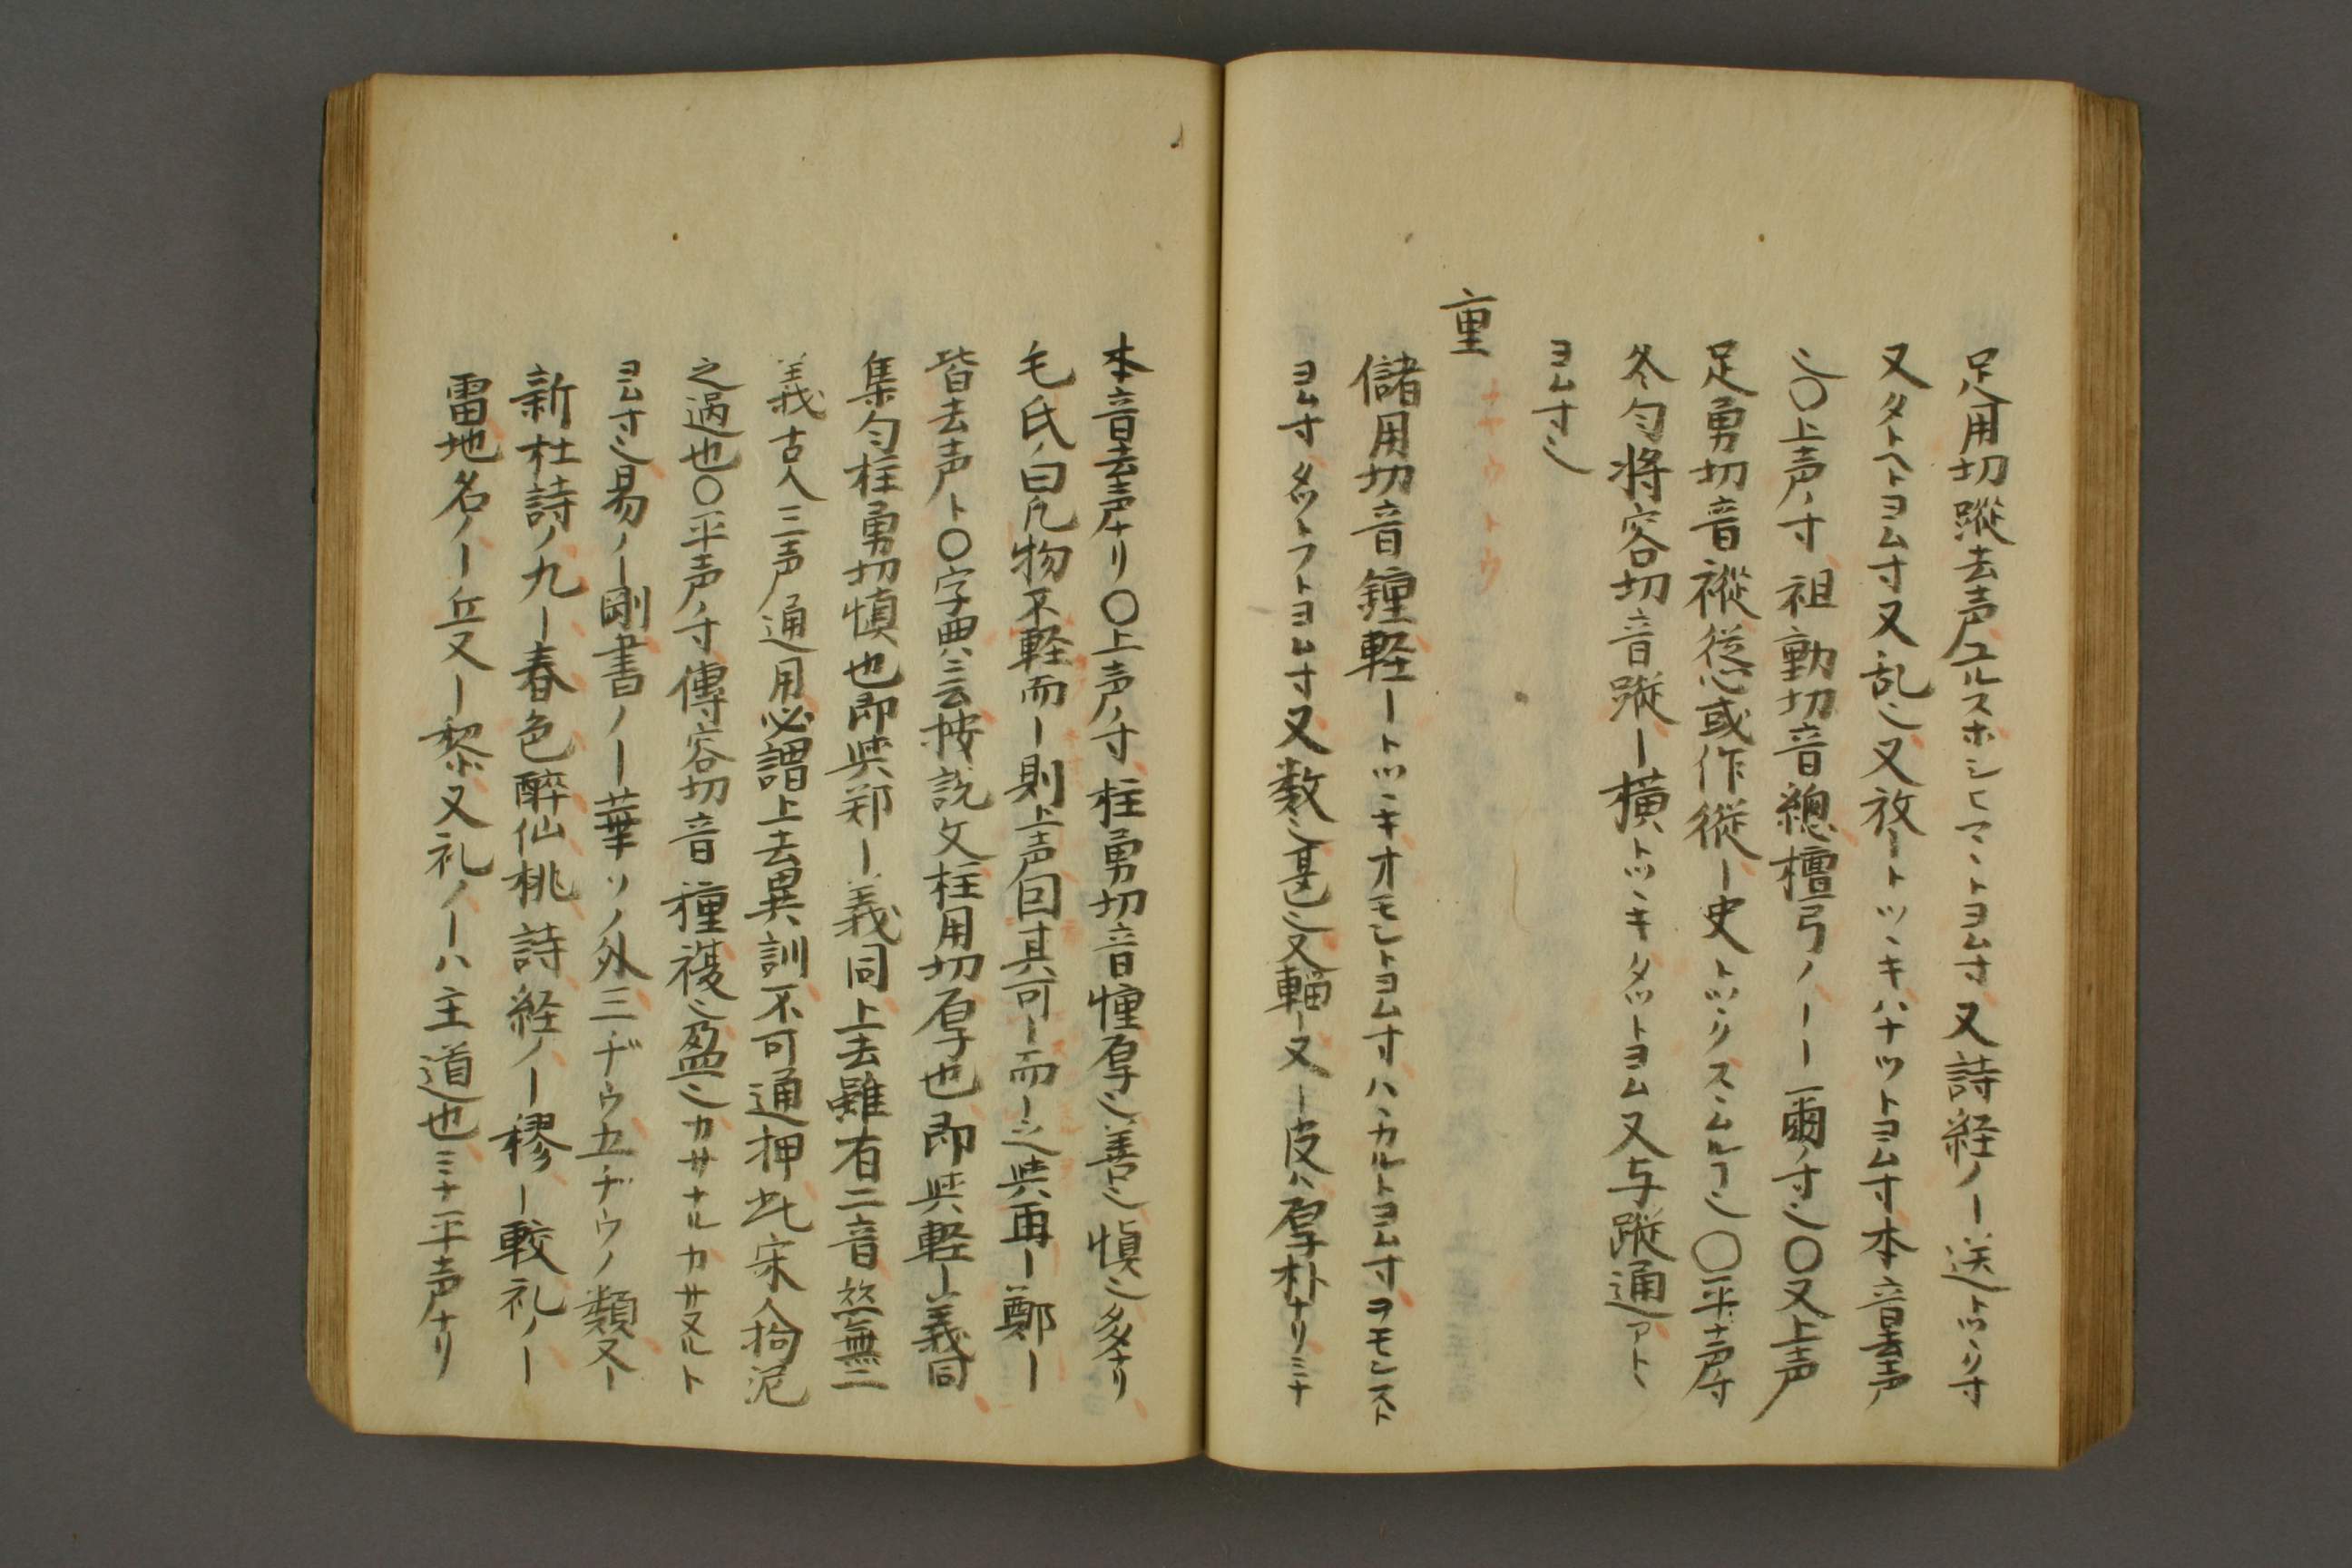 足用切蹤去声ユルスホシヒマヽトヨム寸又詩経ノー送トツヽク寸
又タトヘトヨム寸又乱ミ又放ートツヽキハナツトヨム寸本音去声
ミ〇上声ノ寸祖動切音總檀弓ノーー爾ノ寸ミ〇又上声
足勇切音樅慫或作従ー史トツヽクスヽムルヿミ〇平声ノ寸
冬匀将容切音蹤ー横トツヽキタツトヨム又与蹤通アトヽ
ヨム寸ミ
重
チヤウ トウ
儲用切音鍾軽ートツヽキオモシトヨム寸ハヽカルトヨム寸ヲモンスト
ヨム寸タツトフトヨム寸又数ミ甚ミ又輜ー又ー皮ハ厚朴ナリミナ
本音去声ナリ〇上声ノ寸柱勇切音憧厚ミ善ミ慎ミ多ナリ
毛氏ノ曰凡物不軽而ー則上声因其可ー而ー之與再ー鄭ー
皆去声ト〇字典ニ云按説文柱用切厚也即與軽ー義同
集匀柱勇切慎也即與郑ー義同上去雖有二音益無二
義古人三声通用必謂上去異訓不可通押此宋人拘泥
之過也〇平声ノ寸傳容切音種複ミ盈ミカサナルカサヌルト
ヨム寸ミ易ノー剛書ノー華ソノ外三ヂウ五ヂウノ類又ー
新杜詩ノ九ー春色醉仙桃詩経ノー穋ー較礼ノー
雷地名ノー丘又ー黎又礼ノーハ主道也ミナ平声ナリ